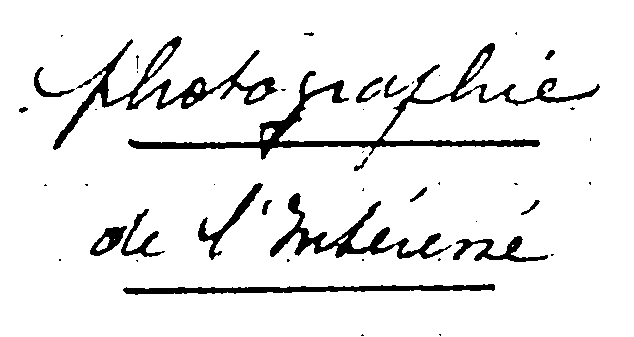 photographie
de l'Intéressé